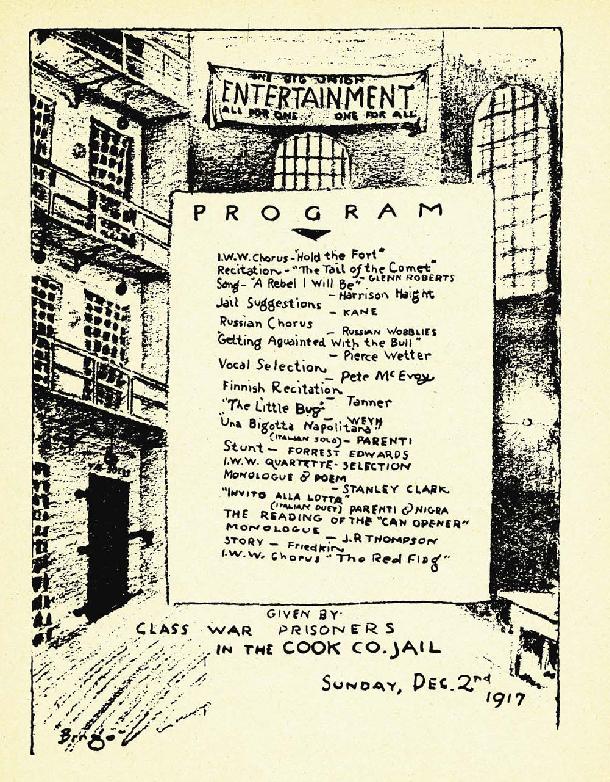 ONE BIG UNION
ENTERTAINMENT
ALL FOR ONE ONE FOR ALL
PROGRAM
I.W.W. Chorus - "Hold the Fort"
Recitation - "The Tail of the Comet"
- GLENN ROBERTS
Song - "A Rebel I Will Be"
- Harrison Haight
Jail Suggestions
- KANE
Russian Chorus
- RUSSIAN WOBBLIES
"Getting Aquainted With the Bull"
- Pierce Wetter
Vocal Selection
- Pete McEvoy
Finnish Recitation
- Tanner
"The Little Bug"
- WEYH
"Una Bigotta Napolitana"
(ITALIAN SOLO) - PARENTI
Stunt - FORREST EDWARDS
I.W.W. QUARTETTE - SELECTION
MONOLOGUE & POEM
- STANLEY CLARK
"INVITO ALLA LOTTA"
(ITALIAN DUET) PARENTI & NIGRA
THE READING OF THE "CAN OPENER"
MONOLOGUE - J.P. THOMPSON
STORY - Friedkin
I.W.W. Chorus "The Red Flag"
GIVEN BY
CLASS WAR PRISONERS
IN THE COOK CO. JAIL
SUNDAY, DEC. 2nd
1917
"Bingo"